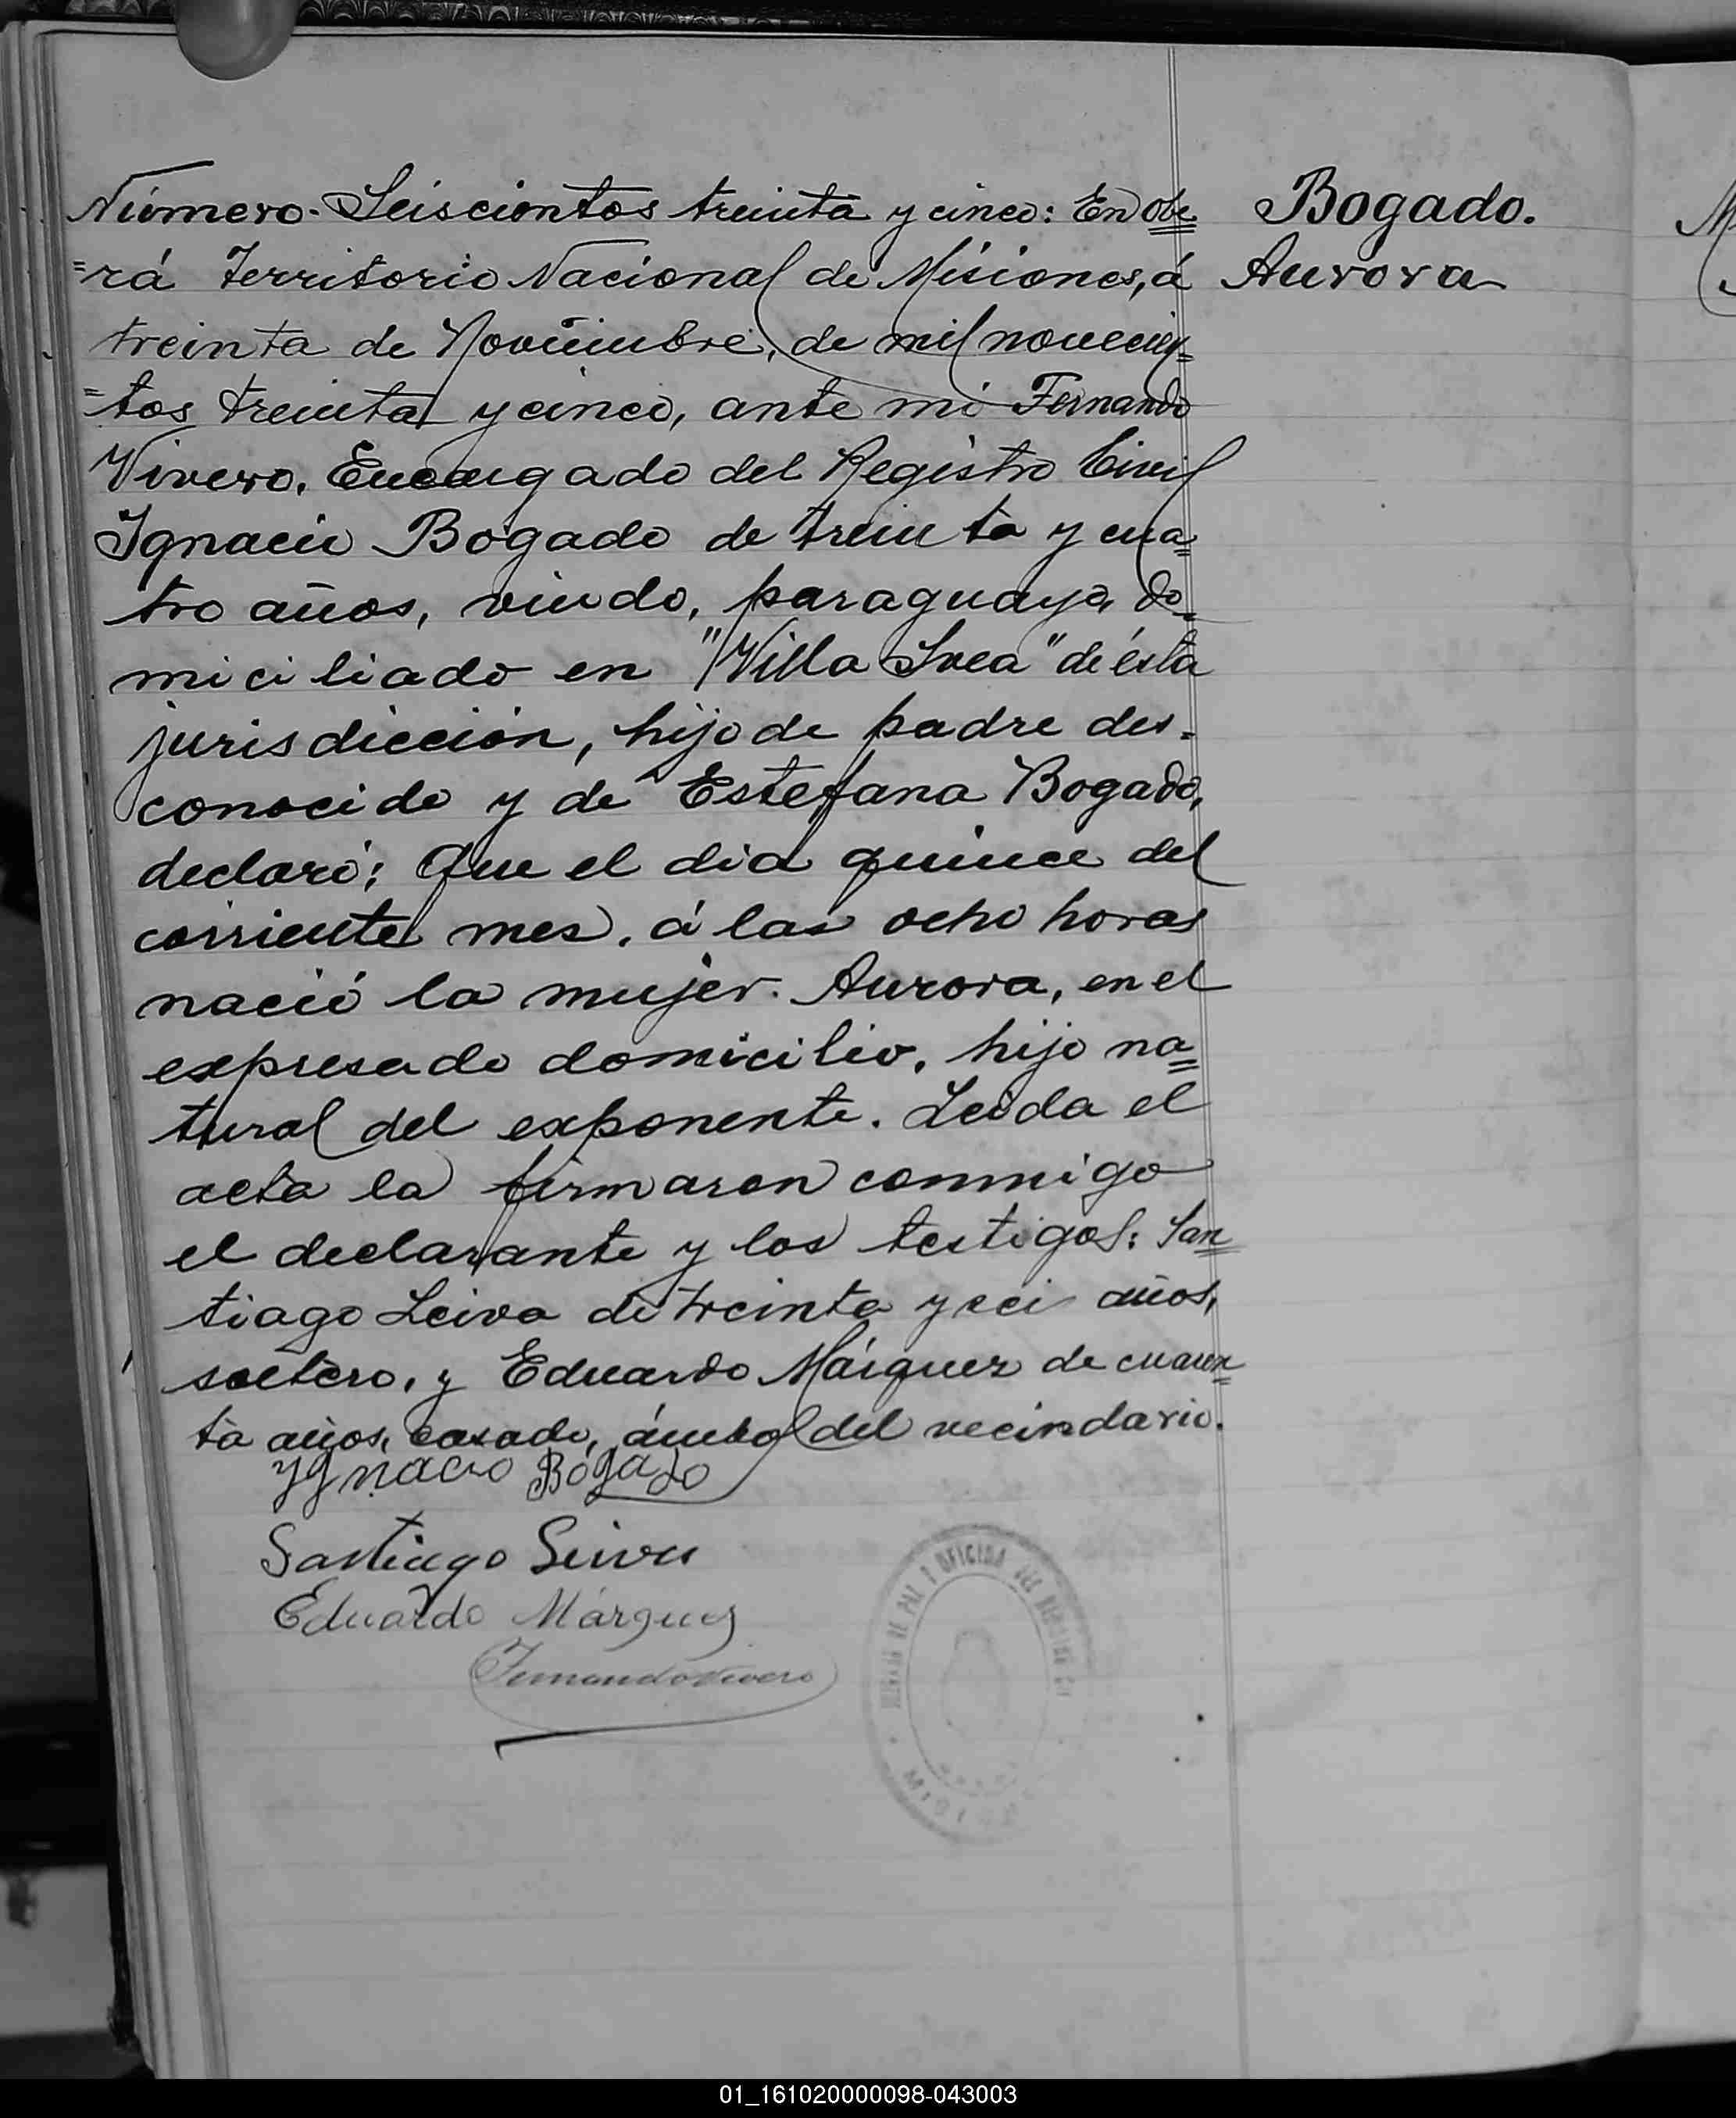 Número. Seiscientos treinta y cinco: En Obe=
=rá Territorio Nacional de Misiones, á
treinta de Noviembre, de mil novecien=
=tos treinta y cinco, ante mi Fernando
Vivero, Encargado del Registro Civil
Ignacio Bogado de treinta y cua=
tro años, viudo, paraguayo, do=
miciliado en "Villa Svea" de ésta
jurisdicción, hijo de padre des=
conocido y de Estefana Bogado,
declaró: Que el dia quince del
corriente mes, á las ocho horas
nació la mujer. Aurora, en el
expresado domicilio, hijo na=
tural del exponente. Leida el
acta la firmaron conmigo
el declarante y los testigos: San=
tiago Leiva de treinta y sei años,
soltero, y Eduardo Márquez de cuaren=
ta años, casado, ámbos del vecindario.
Bogado.
Aurora
Ygnacio Bogado
Santiago Leiva
Eduardo Márquez
Fernando Vivero
DE PAZ Y OFICINA DEL REGISTRO
01_161020000098-043003